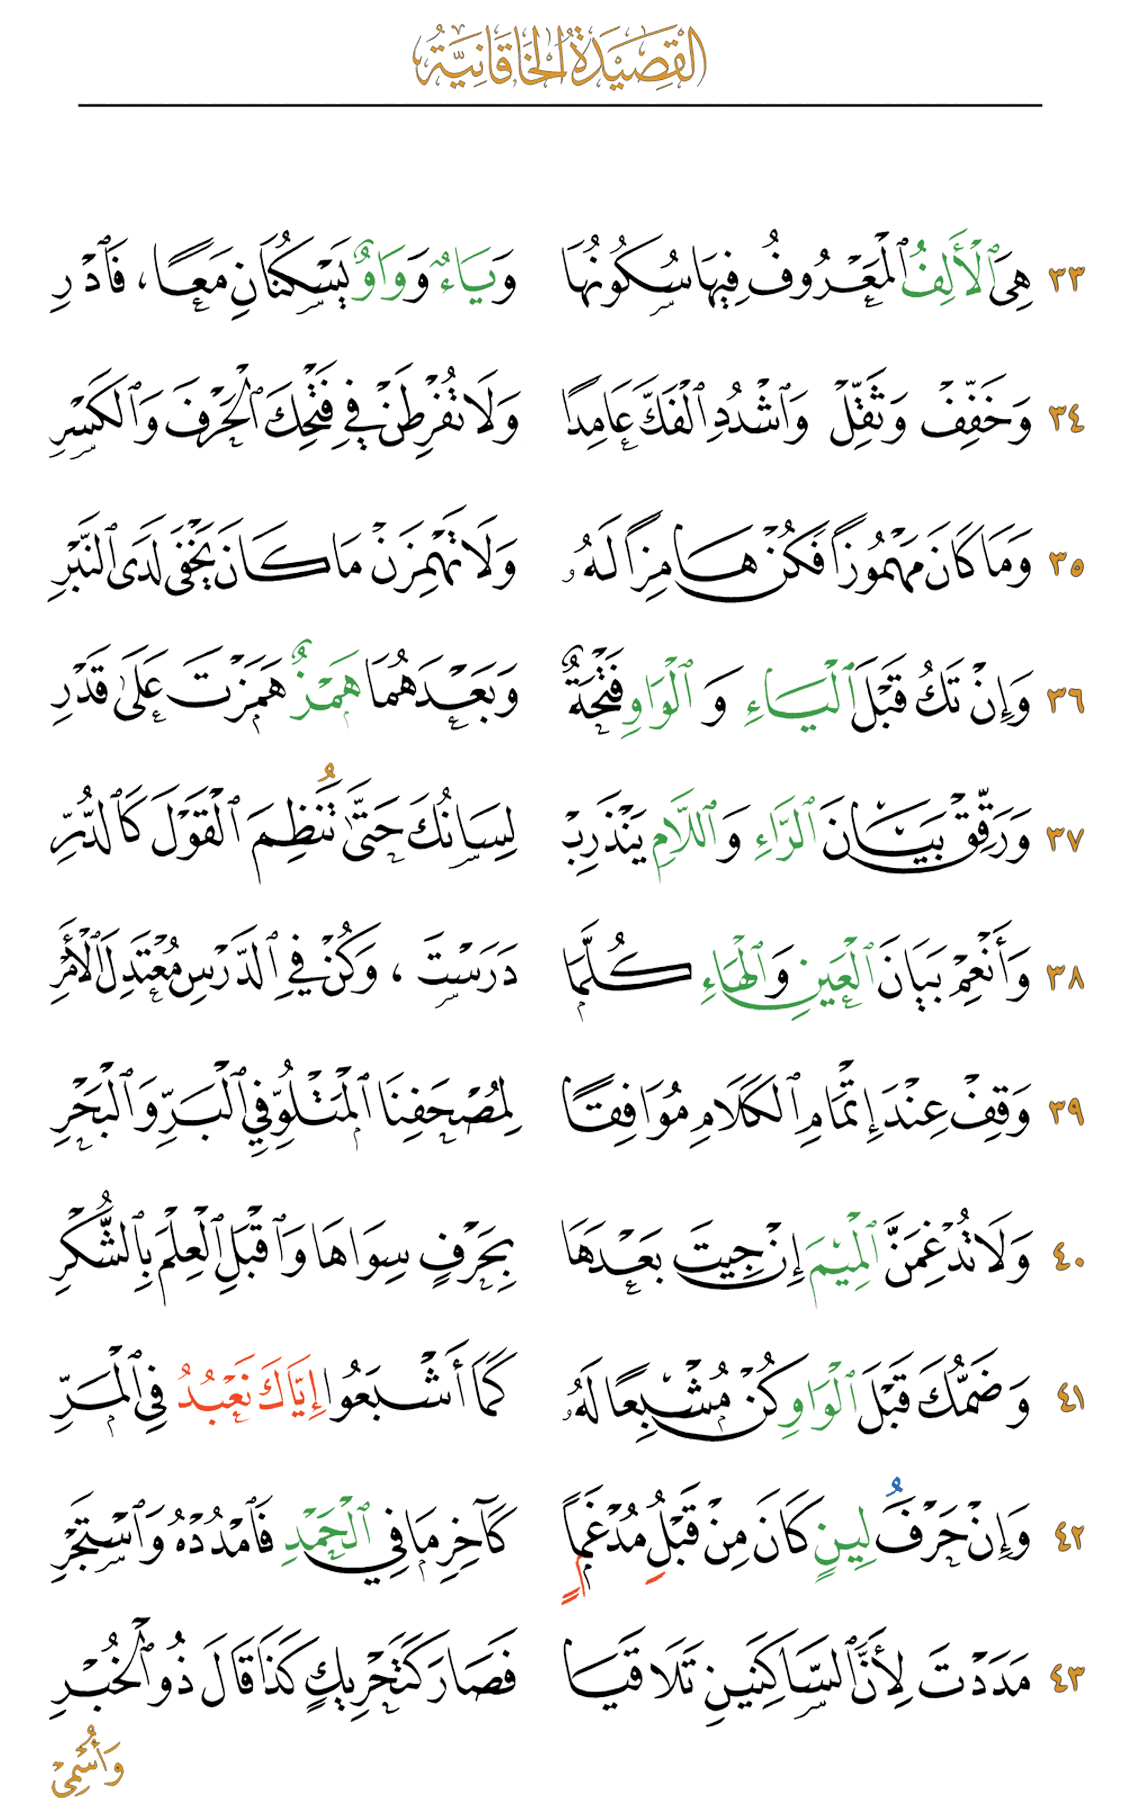 القَصِيدَةُ الخَاقَانِيَّةُ
٣٣ هِيَ ٱلْأَلِفُ ٱلْمَعْرُوفُ فِيهَا سُكُونُهَا وَيَاءٌ وَوَاوٌ يَسْكُنَانِ مَعًا، فَٱدْرِ
٣٤ وَخَفِّفْ وَثَقِّلْ وَٱشْدُدِ ٱلْفَكَّ عَامِدًا وَلَا تُفْرِطَنْ فِي فَتْحِكَ ٱلْحَرْفَ وَٱلْكَسْرِ
٣٥ وَمَا كَانَ مَهْمُوزًا فَكُنْ هَامِزًا لَهُ وَلَا تَهْمِزَنْ مَا كَانَ يَخْفَى لَدَى ٱلنَّبْرِ
٣٦ وَإِنْ تَكُ قَبْلَ ٱلْيَاءِ وَ ٱلْوَاوِ فَتْحَةٌ وَبَعْدَهُمَا هَمْزٌ هَمَزْتَ عَلَىٰ قَدْرِ
٣٧ وَرَقِّقْ بَيَانَ ٱلرَّاءِ وَٱللَّامِ يَنْذَرِبْ لِسَانُكَ حَتَّىٰ تَُنْظِمَ ٱلْقَوْلَ كَٱلدُّرِّ
٣٨ وَأَنْعِمْ بَيَانَ ٱلْعَيْنِ وَٱلْهَاءِ كُلَّمَا دَرَسْتَ ، وَكُنْ فِي ٱلدَّرْسِ مُعْتَدِلَ ٱلْأَمْرِ
٣٩ وَقِفْ عِنْدَ إِتْمَامِ ٱلْكَلَامِ مُوَافِقًا لِمُصْحَفِنَا ٱلْمَتْلُوِّ فِي ٱلْبَرِّ وَٱلْبَحْرِ
٤٠ وَلَا تُدْغِمَنَّ ٱلْمِيْمَ إِنْ جِيتَ بَعْدَهَا بِحَرْفٍ سِوَاهَا وَٱقْبَلِ ٱلْعِلْمَ بِٱلشُّكْرِ
٤١ وَضَمُّكَ قَبْلَ ٱلْوَاوِ كُنْ مُشْبِعًا لَهُ كَمَا أَشْبَعُوا إِيَّاكَ نَعْبُدُ فِي ٱلْمَرِّ
٤٢ وَإِنْ حَرْفَُ لِينٍ كَانَ مِنْ قَبْلِ مُدْغَمًٍا كَآخِرِ مَا فِي ٱلْحَمْدِ فَٱمْدُدْهُ وَٱسْتَجْرِ
٤٣ مَدَدْتَ لِأَنَّ ٱلسَّاكِنَيْنِ تَلَاقَيَا فَصَارَ كَتَحْرِيكٍ كَذَا قَالَ ذُو ٱلْخُبْرِ
وَأُسْمِيْ